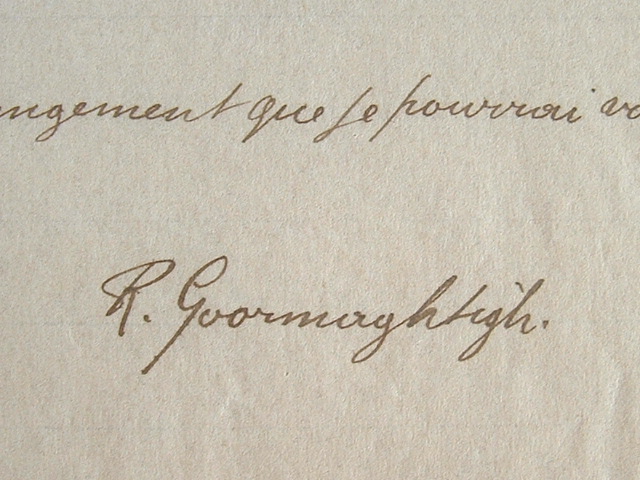 ngement que je pourrai vo
R. Goormaghtigh.